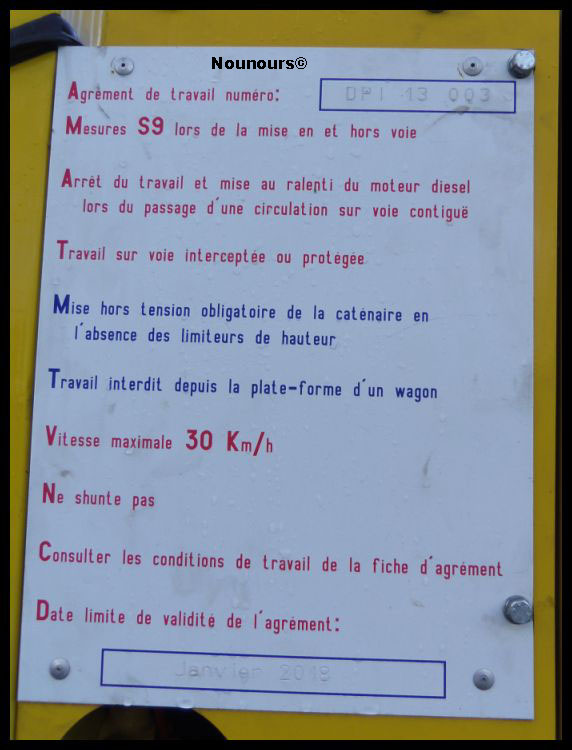 Nounours©
Agrément de travail numéro: DPI 13 003
Mesures S9 lors de la mise en et hors voie
Arrêt du travail et mise au ralenti du moteur diesel
lors du passage d'une circulation sur voie contiguë
Travail sur voie interceptée ou protégée
Mise hors tension obligatoire de la caténaire en
l'absence des limiteurs de hauteur
Travail interdit depuis la plate-forme d'un wagon
Vitesse maximale 30 Km/h
Ne shunte pas
Consulter les conditions de travail de la fiche d'agrément
Date limite de validité de l'agrément:
Janvier